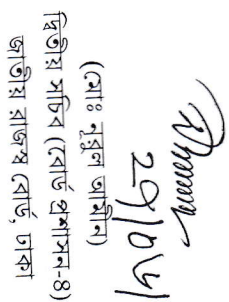 ২৭/০৮/
(মোঃ নূরুল আমিন)
দ্বিতীয় সচিব (বোর্ড প্রশাসন-৪)
জাতীয় রাজস্ব বোর্ড, ঢাকা